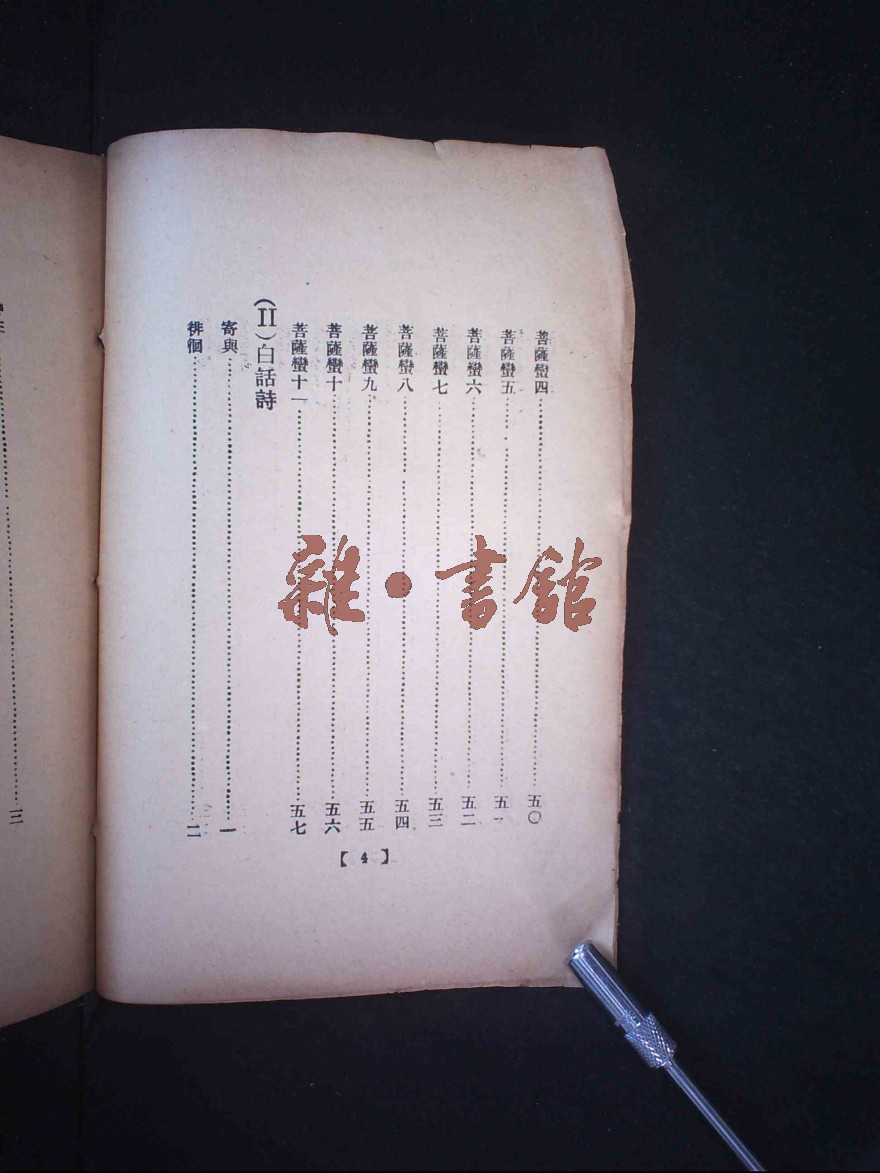 菩薩蠻四……五〇
菩薩蠻五……五一
菩薩蠻六……五二
菩薩蠻七……五三
菩薩蠻八……五四
菩薩蠻九……五五
菩薩蠻十……五六
菩薩蠻十一……五七
(II)白話詩
寄與……一
徘徊……二
【4】
三
雜·書館